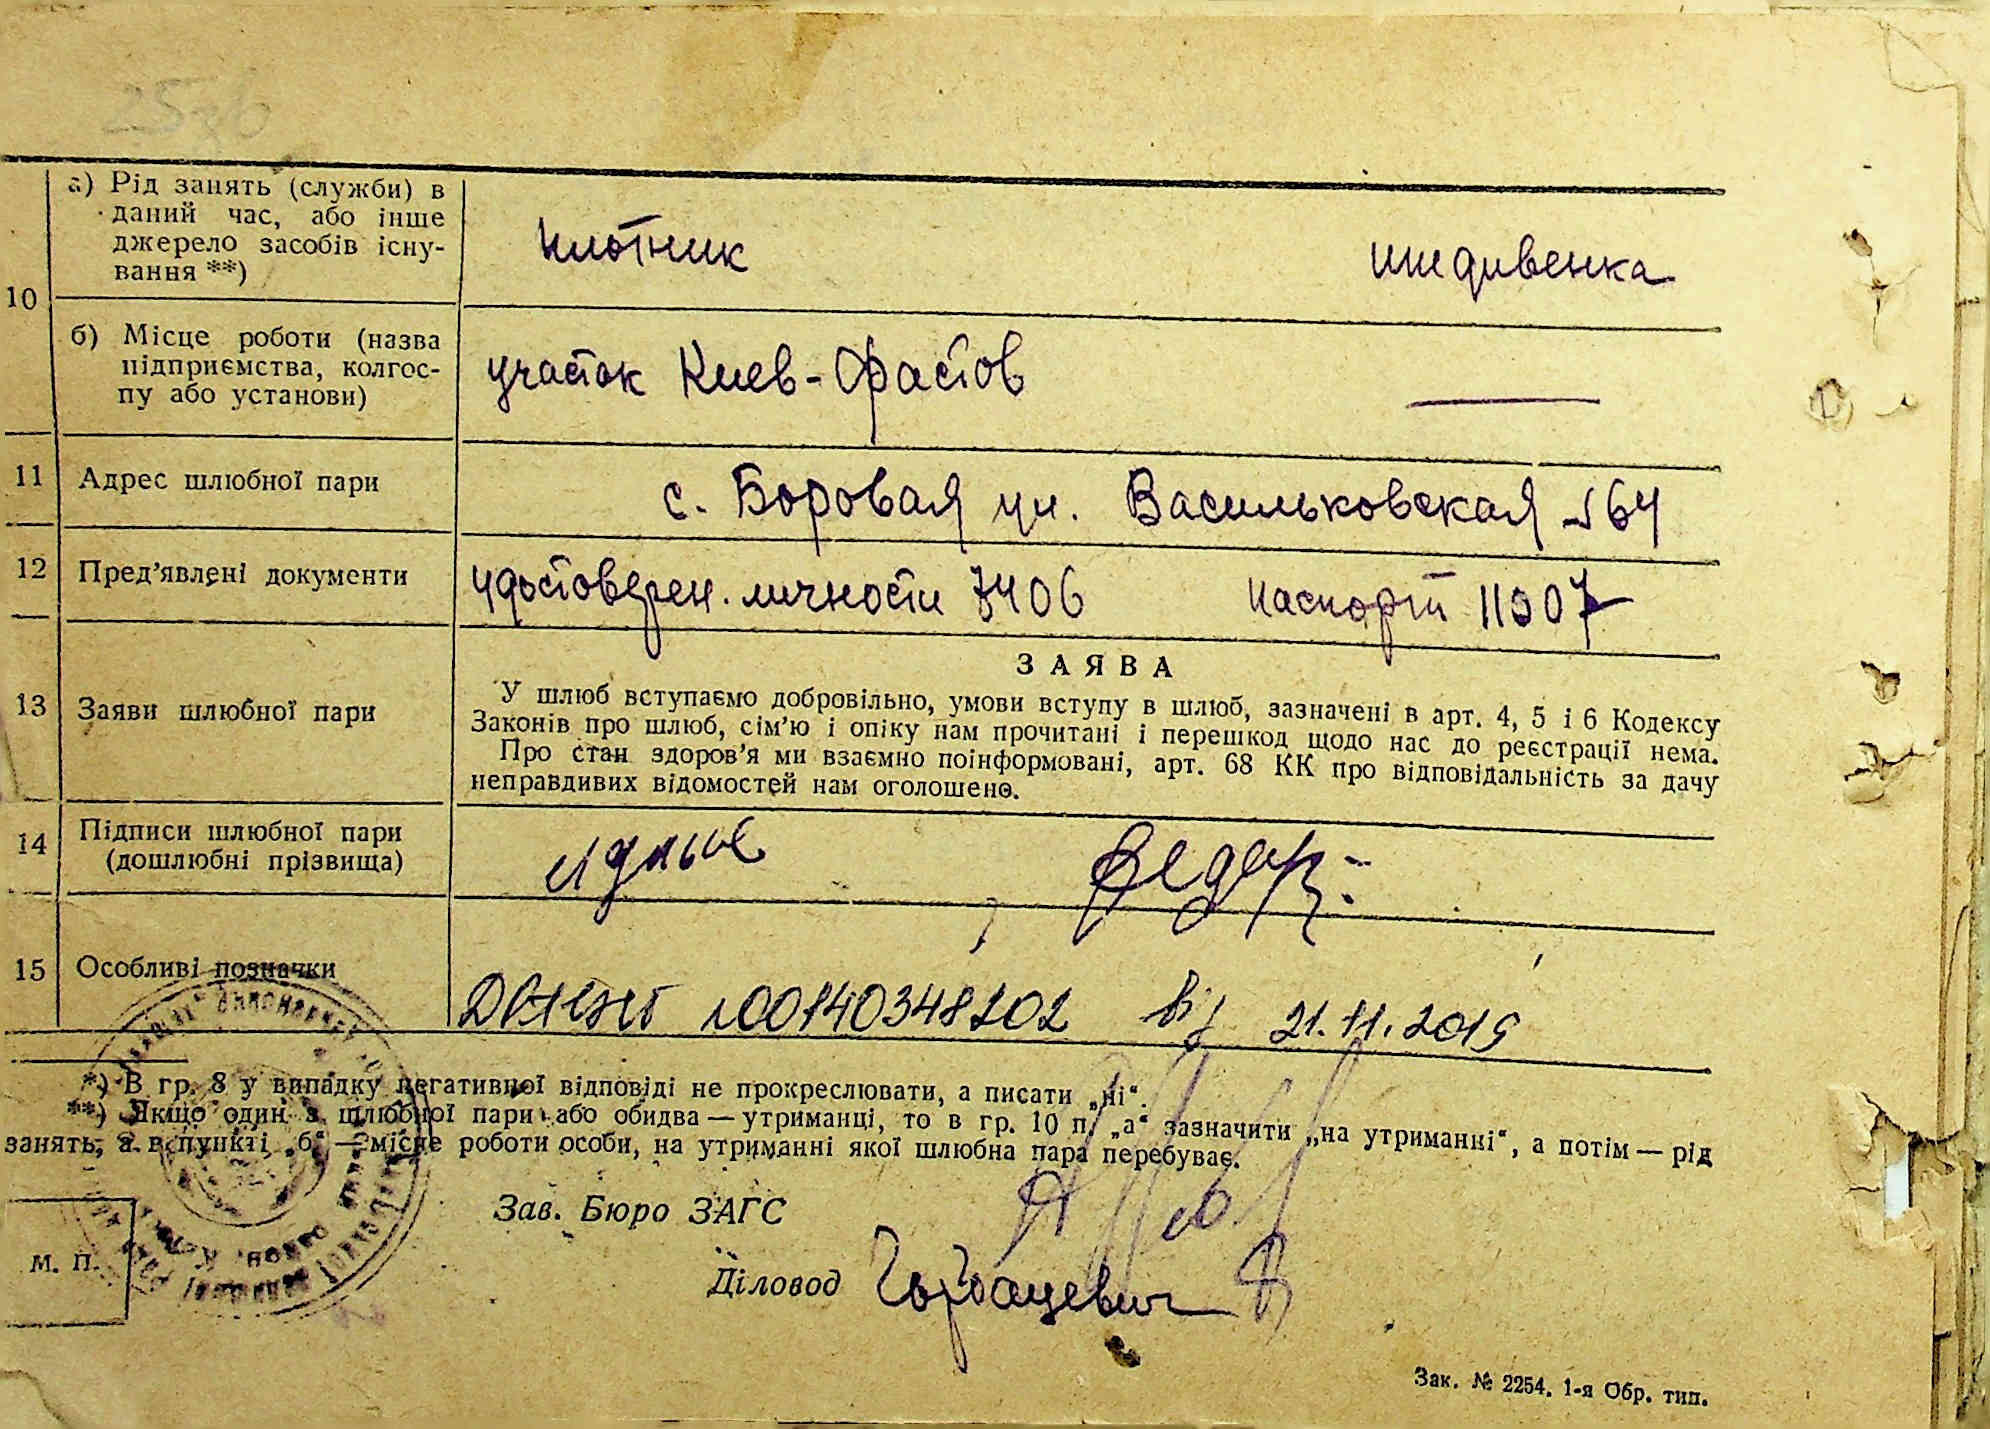 10
а) Рід занять (служби) в
даний час, або інше
джерело засобів існу-
вання **)
плотник
иждивенка
б) Місце роботи (назва
підприємства, колгос-
пу або установи)
участок Киев-Фастов
11
Адрес шлюбної пари
с. Боровая ул. Васильковская 64
12
Пред'явлені документи
удостоверен. личности 7406
паспорт 11007
13
Заяви шлюбної пари
ЗАЯВА
У шлюб вступаємо добровільно, умови вступу в шлюб, зазначені в арт. 4, 5 і 6 Кодексу
Законів про шлюб, сім'ю і опіку нам прочитані і перешкод щодо нас до реєстрації нема.
Про стан здоров'я ми взаємно поінформовані, арт. 68 КК про відповідальність за дачу
неправдивих відомостей нам оголошено.
14
Підписи шлюбної пари
(дошлюбні прізвища)
15
Особливі позначки
00140348202 від 21.11.2019
*) В гр. 8 у випадку негативної відповіді не прокреслювати, а писати „ні“.
**) Якщо один з шлюбної пари або обидва — утриманці, то в гр. 10 п. „а“ зазначити „на утриманні“, а потім — рід
занять, а в пункті „б“ — місце роботи особи, на утриманні якої шлюбна пара перебуває.
Зав. Бюро ЗАГС
М. П.
Діловод Горбацевич
Зак. № 2254. 1-я Обр. тип.